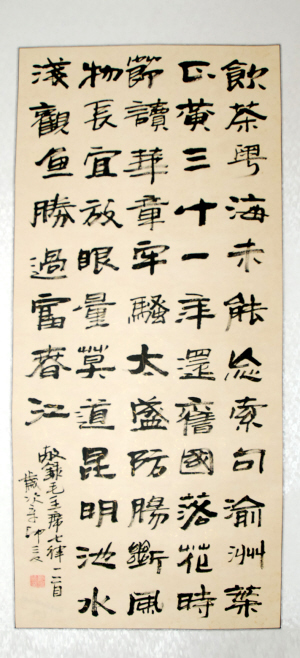 飲茶粤海未能忘索句渝州葉
正黄三十一年還舊國落花時
節讀華章牢騷太盛防腸斷風
物長宜放眼量莫道昆明池水
淺觀魚勝過富春江
敬錄毛主席七律一首
歲次